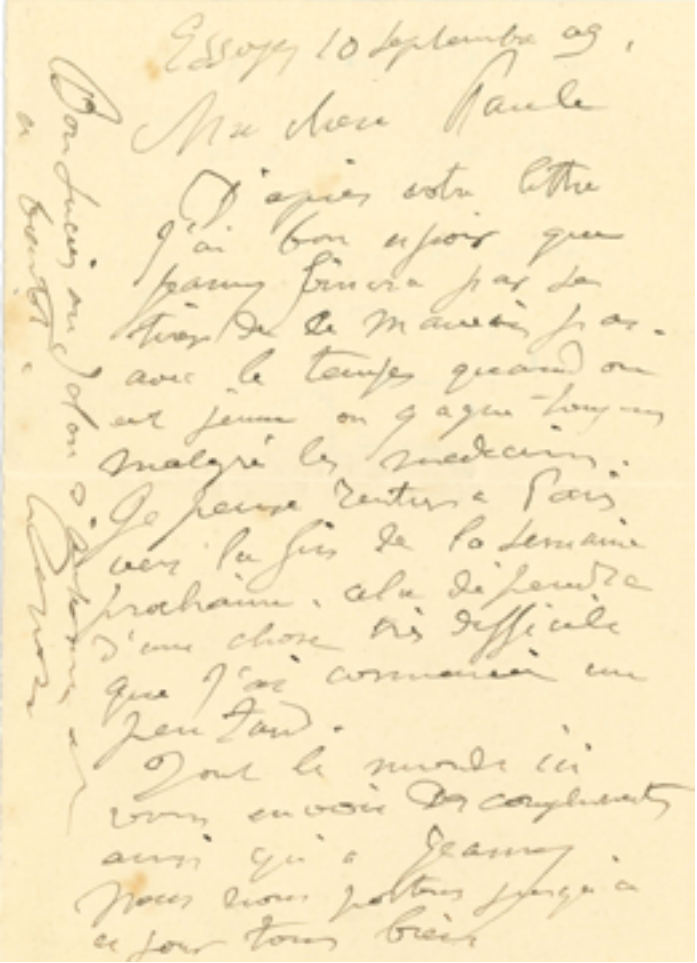 Essoyes 10 septembre 09.
Ma chère Paule
D'après votre lettre
j'ai bon espoir que
Jeanny finira par se
tirer de ce mauvais pas.
avec le temps quand on
est jeune on gagne toujours
malgré les medecins.
Je pense rentrer a Paris
vers la fin de la semaine
prochaine. cela dépendra
d'une chose très difficile
que j'ai commencée un
peu tard.
Tout le monde ici
vous envoie des compliments
ainsi qu'a Jeanny
nous nous portons jusqu'à
ce jour tous bien
Renoir